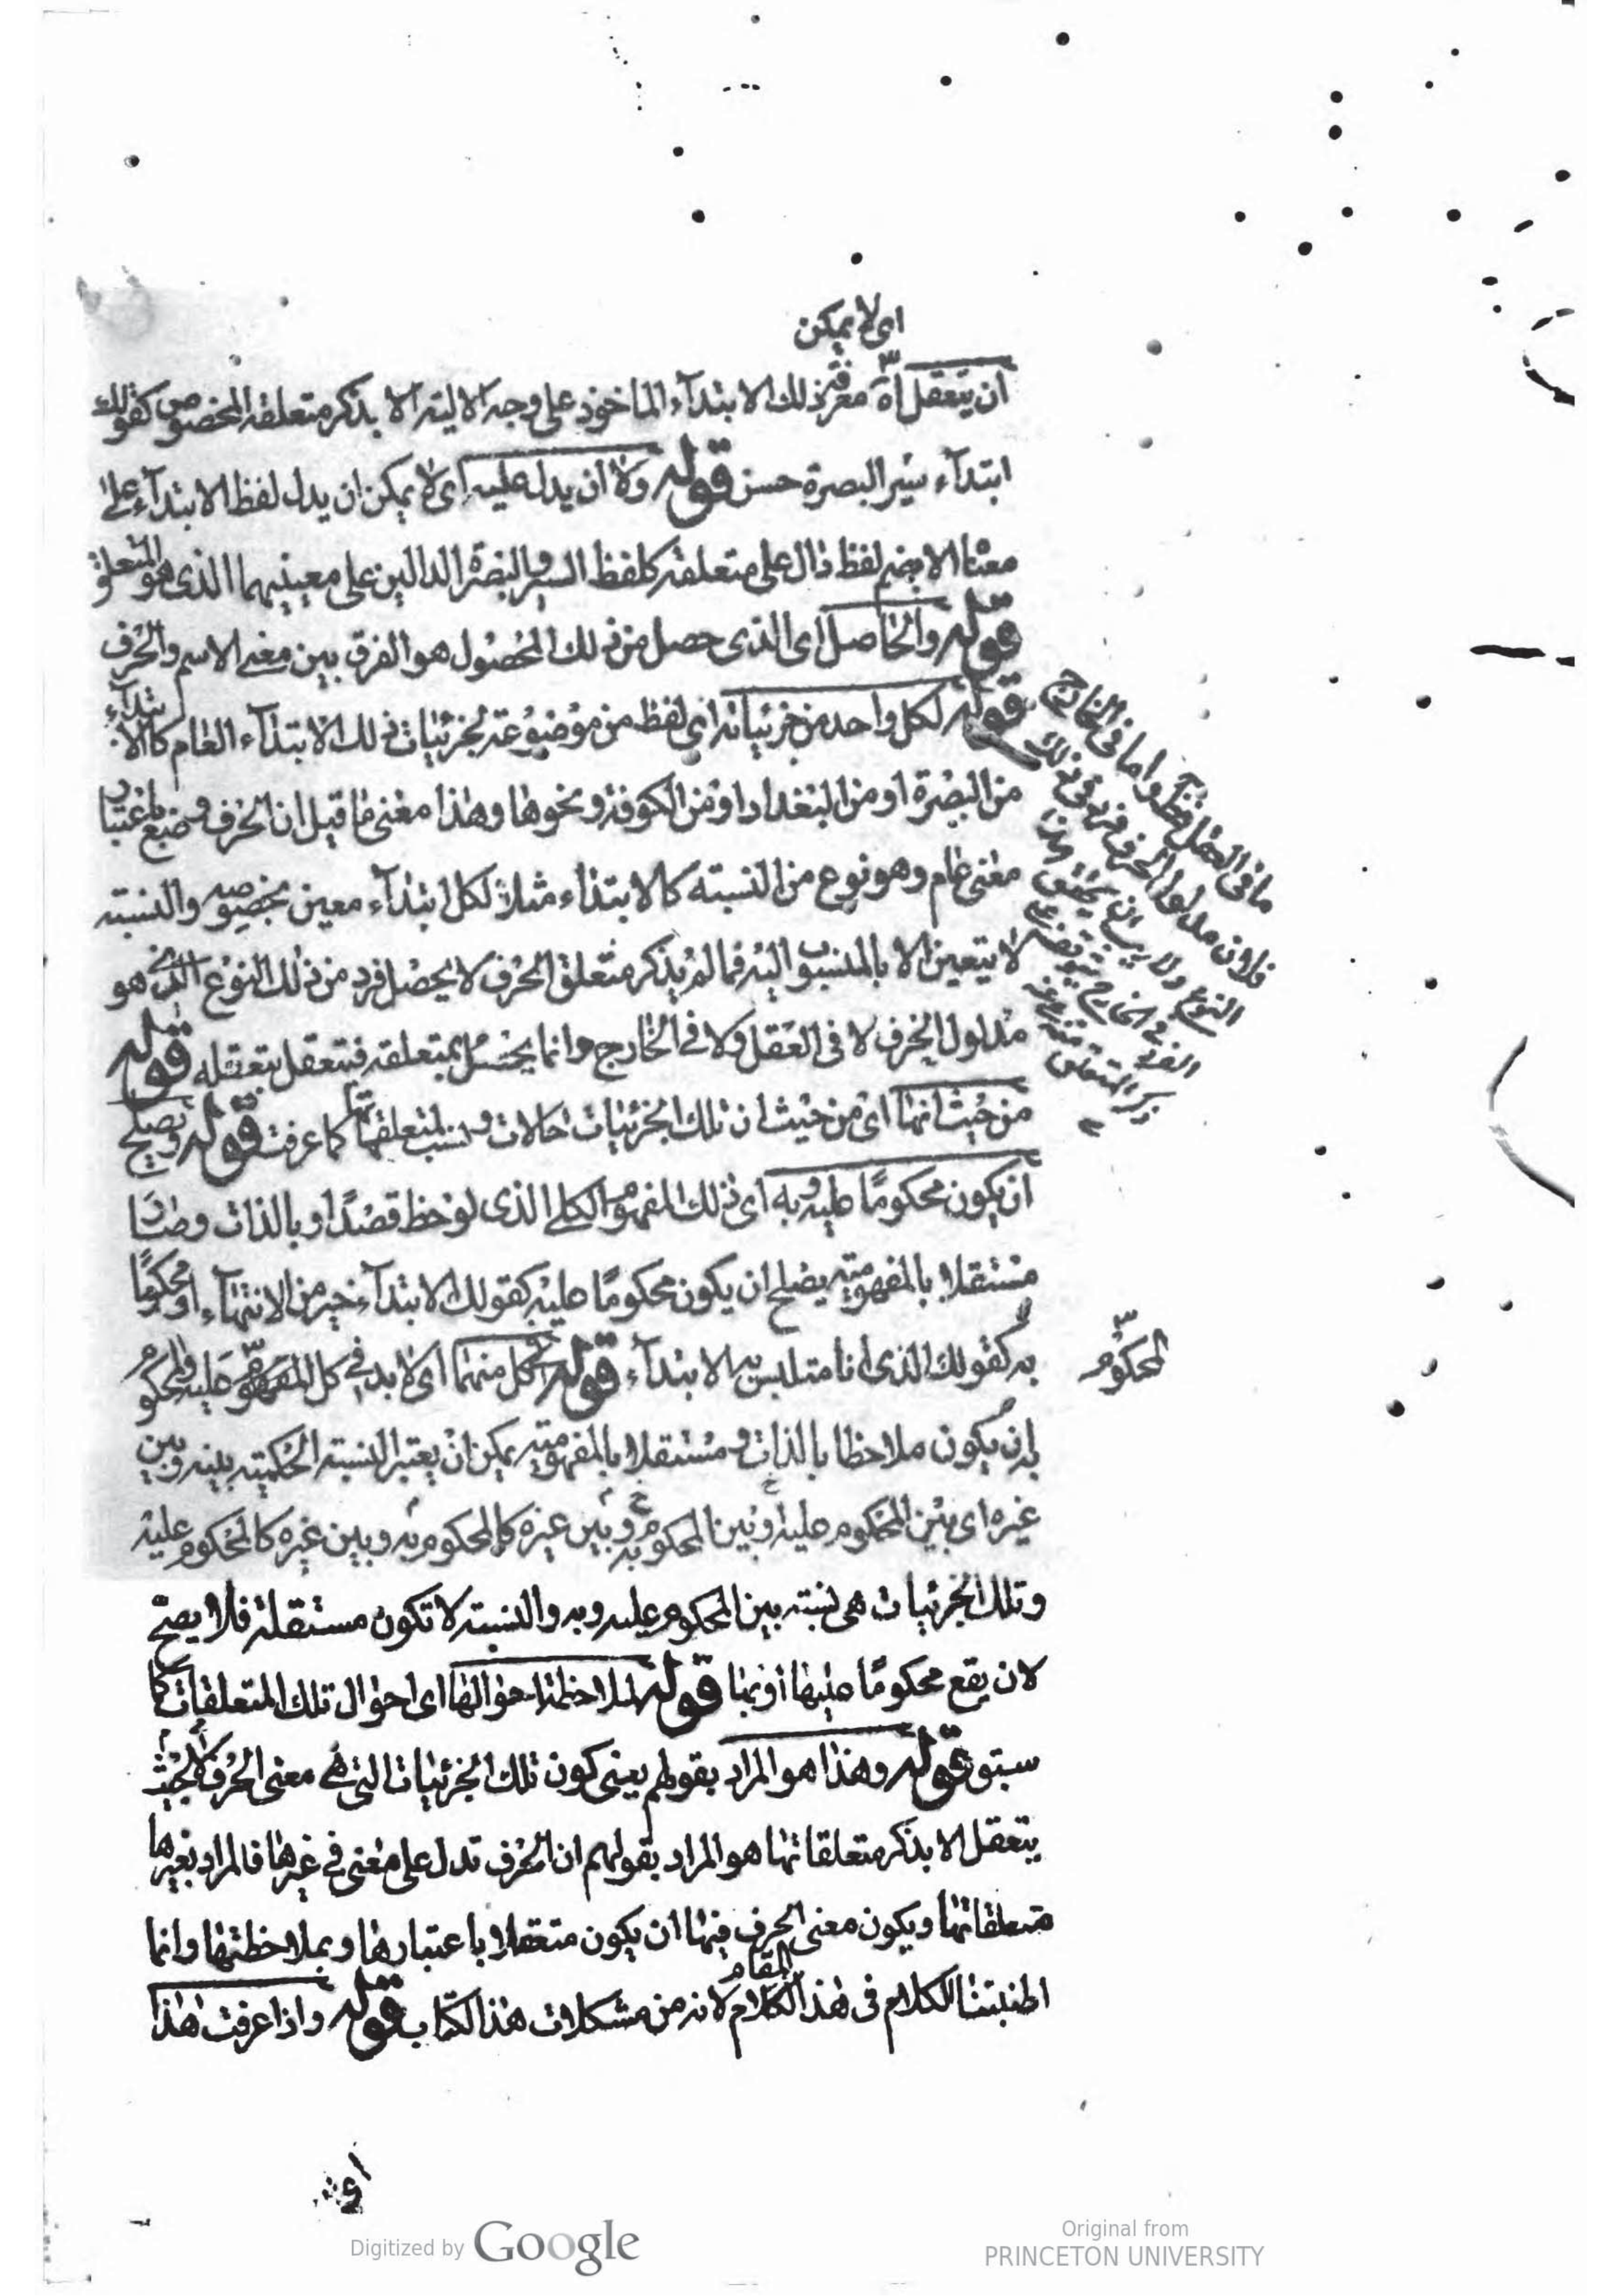 اى لا يمكن
ان يتعقل اى معرفة ذلك الابتدآء الماخوذ على وجه الالية الا بذكر متعلقه المخصوص كقولك
ابتدآء سير البصرة حسن قوله ولا ان يدل عليه اى لا يمكن ان يدل لفظ الابتدآء على
معناه الا بضم لفظ دال على متعلقه كلفظ السير والبصرة الدالين على معنييهما الذى هو المتعلق
قوله والحاصل اى الذى حصل من ذلك المحصول هو الفرق بين معنى الاسم والحرف
قوله لكل واحد من جزئياته اى لفظ من موضوعة لجزئيات ذلك الابتدآء العام كالابتدآء
من البصرة او من البغداد او من الكوفة ونحوها وهذا معنى ما قيل ان الحرف وضع باعتبار
معنى عام وهو نوع من النسبته كالابتداء مثلا لكل ابتدآء معين بخصوصه والنسبته
لا يتعين الا بالمنسوب اليه فما لم يذكر متعلق الحرف لا يحصل فرد من ذلك النوع الذى هو
مدلول الحرف لا فى العقل ولا فى الخارج وانما يحصل بمتعلقه فتعقل بتعقله قوله
من حيث انها اى من حيث ان تلك الجزئيات حالات ونسب لمتعلقاتها كما عرفت قوله وتصلح
ان يكون محكومًا عليه وبه اى ذلك المفهوم الكلى الذى لوحظ قصدًا وبالذات وصار
مستقلا بالمفهومية يصلح ان يكون محكومًا عليه كقولك الابتدآء خير من الانتهآء او محكومًا
به كقولك الذى انا متلبس به الابتدآء قوله كل منهما اى لا بد فى كل المفهوم عليه والمحكوم
به ان يكون ملاحظا بالذات ومستقلا بالمفهومية يمكن ان يعتبر النسبته الحكمية بينه وبين
غيره اى بين المحكوم عليه وبين المحكوم به وبين غيره كالمحكوم به وبين غيره كالمحكوم عليه
وتلك الجزئيات هى نسبته بين المحكوم عليه وبه والنسبته لا تكون مستقلة فلا يصح
لان يقع محكومًا عليها او بها قوله لملاحظة احوالها اى احوال تلك المتعلقات كما
سبق قوله وهذا هو المراد بقولهم يعنى كون تلك الجزئيات التى هى معنى الحرف بحيث لا
يتعقل الا بذكر متعلقاتها هو المراد بقولهم ان الحرف تدل على معنى فى غيرها فالمراد بغيرها
متعلقاتها ويكون معنى الحرف فيها ان يكون متعقلا باعتبارها وبملاحظتها وانما
اطنبتنا الكلام فى هذا الكلام المقام لانه من مشكلات هذا الكتاب قوله واذا عرفت هذا
ما فى العقل فظ واما فى الخارج
فلان مدلول الحرف فرد من ذلك
النوع ولا ريب ان تحقق
الفرد فى الخارج
المتعلق
المحكوم
Digitized by Google
Original from
PRINCETON UNIVERSITY